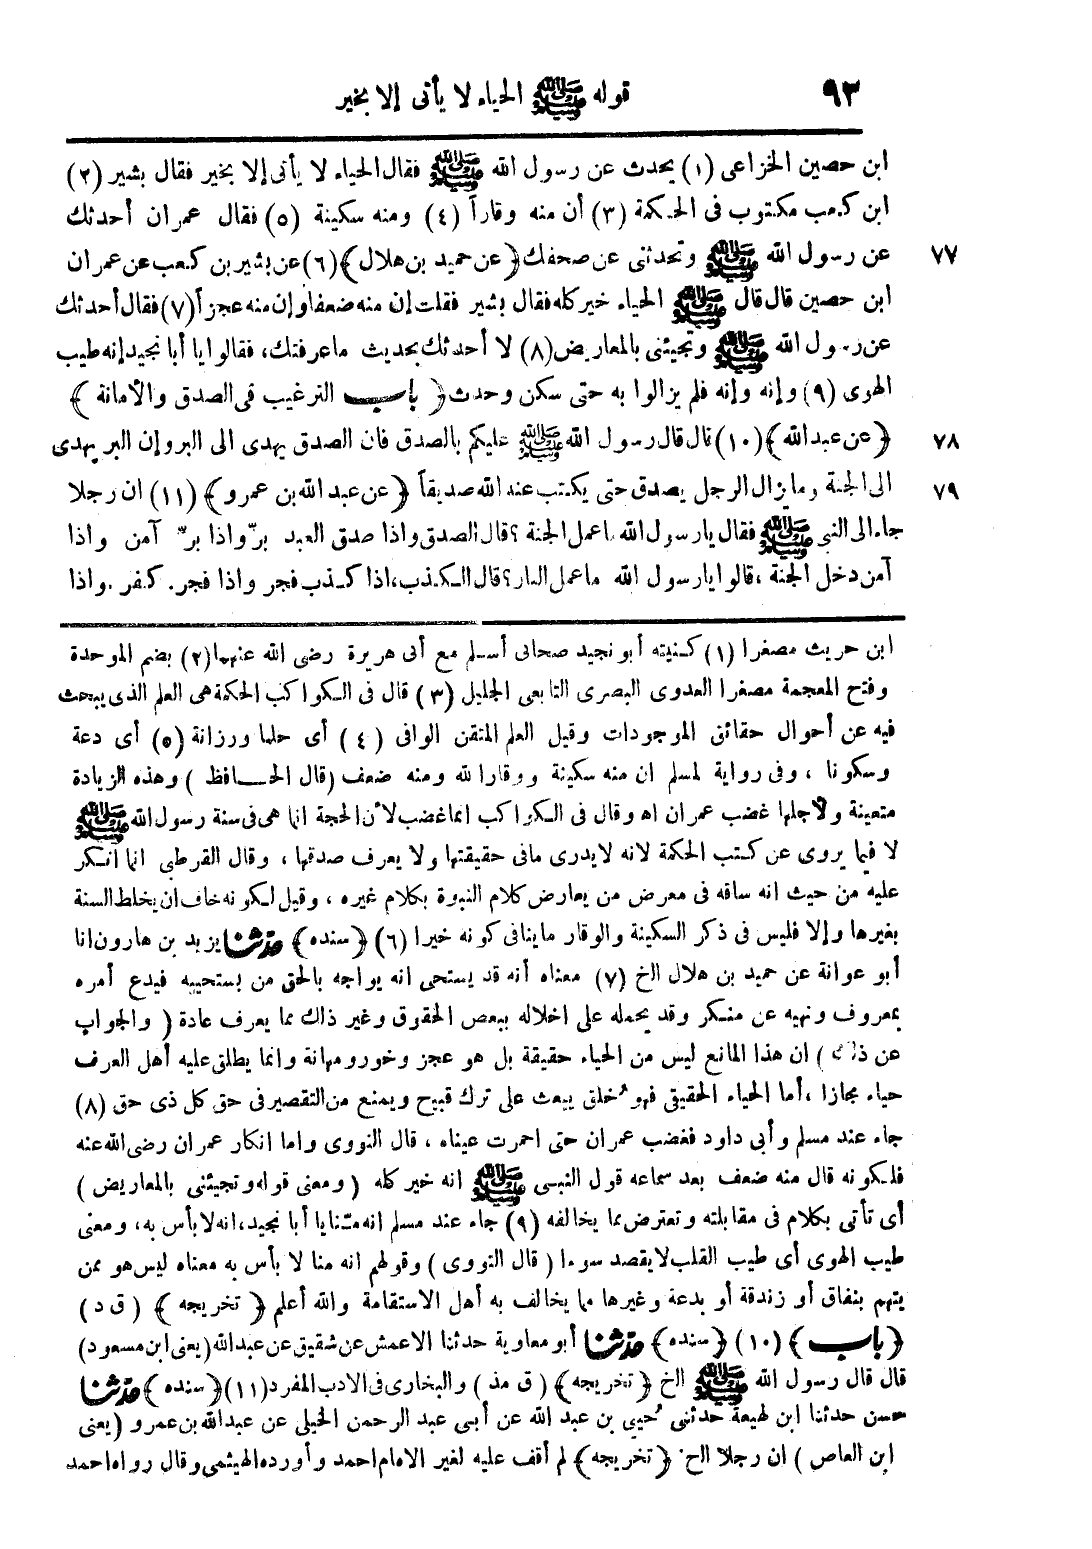 ٩٣ قوله ﷺ الحياء لا يأتى إلا بخير
ابن حصين الخزاعى (١) يحدث عن رسول الله ﷺ فقال الحياء لا يأتى إلا بخير فقال بشير (٢)
ابن كعب مكتوب فى الحكمة (٣) أن منه وقاراً (٤) ومنه سكينة (٥) فقال عمران أحدثك
٧٧ عن رسول الله ﷺ وتحدثنى عن صحفك ﴿عن حميد بن هلال﴾ (٦) عن بشير بن كعب عن عمران
ابن حصين قال قال ﷺ الحياء خير كله فقال بشير فقلت إن منه ضعفا وإن منه عجزاً (٧) فقال أحدثك
عن رسول الله ﷺ وتجيئنى بالمعاريض (٨) لا أحدثك بحديث ما عرفتك، فقالوا يا أبا نجيد إنه طيب
الهوى (٩) وإنه وإنه فلم يزالوا به حتى سكن وحدث ﴿باب الترغيب فى الصدق والأمانة﴾
٧٨ ﴿عن عبدالله﴾ (١٠) قال قال رسول الله ﷺ عليكم بالصدق فان الصدق يهدى الى البر وإن البر يهدى
٧٩ الى الجنة وما يزال الرجل يصدق حتى يكتب عند الله صديقاً ﴿عن عبد الله بن عمرو﴾ (١١) ان رجلا
جاء الى النبى ﷺ فقال يا رسول الله ما عمل الجنة ؟ قال الصدق واذا صدق العبد برّ واذا برّ آمن واذا
آمن دخل الجنة ، قالوا يا رسول الله ما عمل النار؟ قال الكذب، اذا كذب فجر واذا فجر. كفر . واذا
ابن حريث مصغرا (١) كنيته أبو نجيد صحابى أسلم مع أبى هريرة رضى الله عنهما (٢) بضم الموحدة
وفتح المعجمة مصغرا العدوى البصرى التابعى الجليل (٣) قال فى الكواكب الحكمة هى العلم الذى يبحث
فيه عن أحوال حقائق الموجودات وقيل العلم المتقن الوافى (٤) أى حلما ورزانة (٥) أى دعة
وسكونا ، وفى رواية لمسلم ان منه سكينة ووقارا لله ومنه ضعف (قال الحافظ) وهذه الزيادة
متعينة ولأجلها غضب عمران اه وقال فى الكواكب انما غضب لأن الحجة انما هى فى سنة رسول الله ﷺ
لا فيما يروى عن كتب الحكمة لانه لا يدرى مافى حقيقتها ولا يعرف صدقها ، وقال القرطبى انما انكر
عليه من حيث انه ساقه فى معرض من يعارض كلام النبوة بكلام غيره ، وقيل لكونه خاف ان يخلط السنة
بغيرها وإلا فليس فى ذكر السكينة والوقار ما ينافى كونه خيرا (٦) ﴿سنده﴾ حدثنا يزيد بن هارون انا
أبو عوانة عن حميد بن هلال الخ (٧) معناه أنه قد يستحى انه يواجه بالحق من يستحييه فيدع أمره
بمعروف ونهيه عن منكر وقد يحمله على اخلاله ببعض الحقوق وغير ذلك مما يعرف عادة (والجواب
عن ذلك) ان هذا المانع ليس من الحياء حقيقة بل هو عجز وخور ومهانة وانما يطلق عليه أهل العرف
حياء مجازا ، أما الحياء الحقيقى فهو خلق يبعث على ترك قبيح ويمنع من التقصير فى حق كل ذى حق (٨)
جاء عند مسلم وأبى داود فغضب عمران حتى احمرت عيناه ، قال النووى واما انكار عمران رضى الله عنه
فلكونه قال منه ضعف بعد سماعه قول النبى ﷺ انه خير كله (ومعنى قوله وتجيئنى بالمعاريض)
أى تأتى بكلام فى مقابلته وتعترض بما يخالفه (٩) جاء عند مسلم انه منّا يا أبا نجيد، انه لا بأس به، ومعنى
طيب الهوى أى طيب القلب لا يقصد سوءا (قال النووى) وقولهم انه منا لا بأس به معناه ليس هو ممن
يتهم بنفاق أو زندقة أو بدعة وغيرها مما يخالف به أهل الاستقامة والله أعلم ﴿تخريجه﴾ (ق د)
﴿باب﴾ (١٠) ﴿سنده﴾ حدثنا أبو معاوية حدثنا الاعمش عن شقيق عن عبدالله (يعنى ابن مسعود)
قال قال رسول الله ﷺ الخ ﴿تخريجه﴾ (ق مذ) والبخارى فى الادب المفرد (١١) ﴿سنده﴾ حدثنا
حسن حدثنا ابن لهيعة حدثنى حيي بن عبد الله عن أبى عبد الرحمن الحبلى عن عبدالله بن عمرو (يعنى
ابن العاص) ان رجلا الخ ﴿تخريجه﴾ لم أقف عليه لغير الامام احمد وأورده الهيثمى وقال رواه احمد